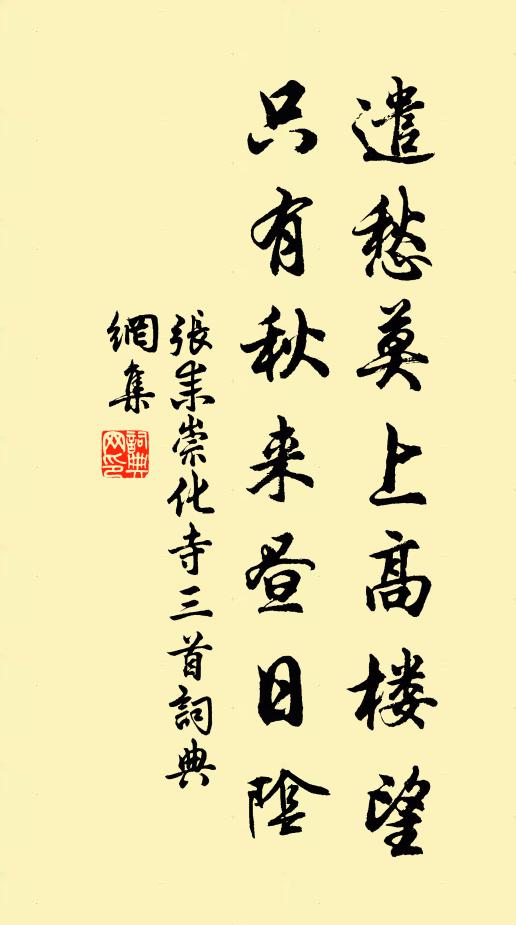 遣愁莫上高楼望
只有秋来昼日陰
張耒崇化寺三首詞典
網集
詞典
网印